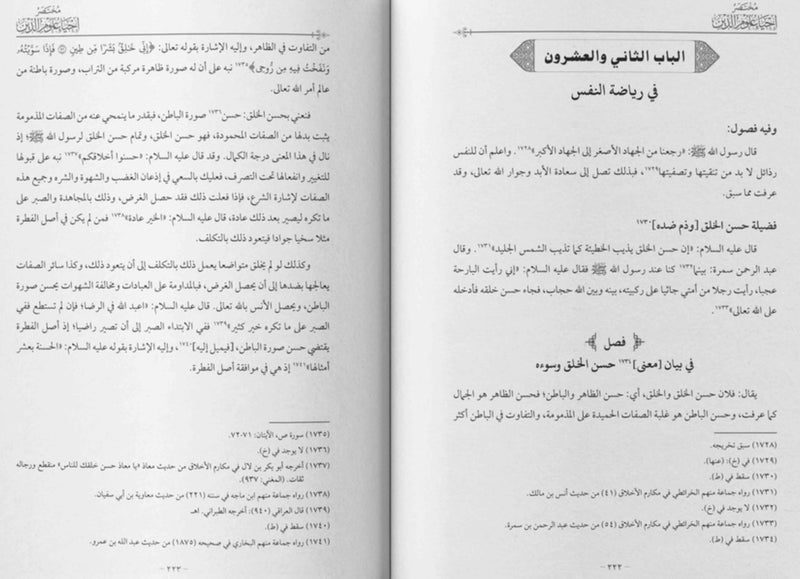 مختصر
إحياء علوم الدين
الباب الثاني والعشرون
في رياضة النفس
وفيه فصول:
قال رسول الله ﷺ: «رجعنا من الجهاد الأصغر إلى الجهاد الأكبر»١٧٢٨. واعلم أن للنفس
رذائل لا بد من تنقيتها وتصفيتها١٧٢٩، فبذلك تصل إلى سعادة الأبد وجوار الله تعالى، وقد
عرفت مما سبق.
فضيلة حسن الخلق [وذم ضده]١٧٣٠
قال عليه السلام: «إن حسن الخلق يذيب الخطيئة كما تذيب الشمس الجليد»١٧٣١. وقال
عبد الرحمن سمرة: بينما١٧٣٢ كنا عند رسول الله ﷺ فقال عليه السلام: «إني رأيت البارحة
عجبا، رأيت رجلا من أمتي جاثيا على ركبتيه، بينه وبين الله حجاب، فجاء حسن خلقه فأدخله
على الله تعالى»١٧٣٣.
فصل
في بيان [معنى]١٧٣٤ حسن الخلق وسوءه
يقال: فلان حسن الخلق والخلق، أي: حسن الظاهر والباطن؛ فحسن الظاهر هو الجمال
كما عرفت، وحسن الباطن هو غلبة الصفات الحميدة على المذمومة، والتفاوت في الباطن أكثر
(١٧٢٨) سبق تخريجه.
(١٧٢٩) في (خ): (عنها).
(١٧٣٠) سقط في (ط).
(١٧٣١) رواه جماعة منهم الخرائطي في مكارم الأخلاق (٤١) من حديث أنس بن مالك.
(١٧٣٢) لا يوجد في (خ).
(١٧٣٣) رواه جماعة منهم الخرائطي في مكارم الأخلاق (٥٤) من حديث عبد الرحمن بن سمرة.
(١٧٣٤) سقط في (ط).
- ٢٢٢ -
مختصر
إحياء علوم الدين
من التفاوت في الظاهر، وإليه الإشارة بقوله تعالى: ﴿إِنِّي خَٰلِقٌۢ بَشَرٗا مِّن طِينٖ ۝ فَإِذَا سَوَّيۡتُهُۥ
وَنَفَخۡتُ فِيهِ مِن رُّوحِي﴾١٧٣٥ نبه على أن له صورة ظاهرة مركبة من التراب، وصورة باطنة من
عالم أمر الله تعالى.
فنعني بحسن الخلق: حسن١٧٣٦ صورة الباطن، فبقدر ما ينمحي عنه من الصفات المذمومة
يثبت بدلها من الصفات المحمودة، فهو حسن الخلق، وتمام حسن الخلق لرسول الله ﷺ؛ إذ
نال في هذا المعنى درجة الكمال. وقد قال عليه السلام: «حسنوا أخلاقكم»١٧٣٧ نبه على قبولها
للتغيير وانفعالها تحت التصرف، فعليك بالسعي في إذعان الغضب والشهوة والشره وجميع هذه
الصفات لإشارة الشرع، فإذا فعلت ذلك فقد حصل الغرض، وذلك بالمجاهدة والصبر على
ما تكره ليصير بعد ذلك عادة، قال عليه السلام: «الخير عادة»١٧٣٨ فمن لم يكن في أصل الفطرة
مثلا سخيا جوادا فيتعود ذلك بالتكلف.
وكذلك لو لم يخلق متواضعا يعمل ذلك بالتكلف إلى أن يتعود ذلك، وكذا سائر الصفات
يعالجها بضدها إلى أن يحصل الغرض، فبالمداومة على العبادات ومخالفة الشهوات يحسن صورة
الباطن، ويحصل الأنس بالله تعالى. قال عليه السلام: «اعبد الله في الرضا؛ فإن لم تستطع ففي
الصبر على ما تكره خير كثير»١٧٣٩ ففي الابتداء الصبر إلى أن تصير راضيا؛ إذ أصل الفطرة
يقتضي حسن صورة الباطن، [فيميل إليه]١٧٤٠، وإليه الإشارة بقوله عليه السلام: «الحسنة بعشر
أمثالها»١٧٤١ إذ هي في موافقة أصل الفطرة.
(١٧٣٥) سورة ص، الآيتان: ٧١-٧٢.
(١٧٣٦) لا يوجد في (خ).
(١٧٣٧) أخرجه أبو بكر بن لال في مكارم الأخلاق من حديث معاذ «يا معاذ حسن خلقك للناس» منقطع ورجاله
ثقات. (المغني: ٩٣٧).
(١٧٣٨) رواه جماعة منهم ابن ماجه في سننه (٢٢١) من حديث معاوية بن أبي سفيان.
(١٧٣٩) قال العراقي (٩٤٠): أخرجه الطبراني. اهـ
(١٧٤٠) سقط في (ط).
(١٧٤١) رواه جماعة منهم البخاري في صحيحه (١٨٧٥) من حديث عبد الله بن عمرو.
- ٢٢٣ -